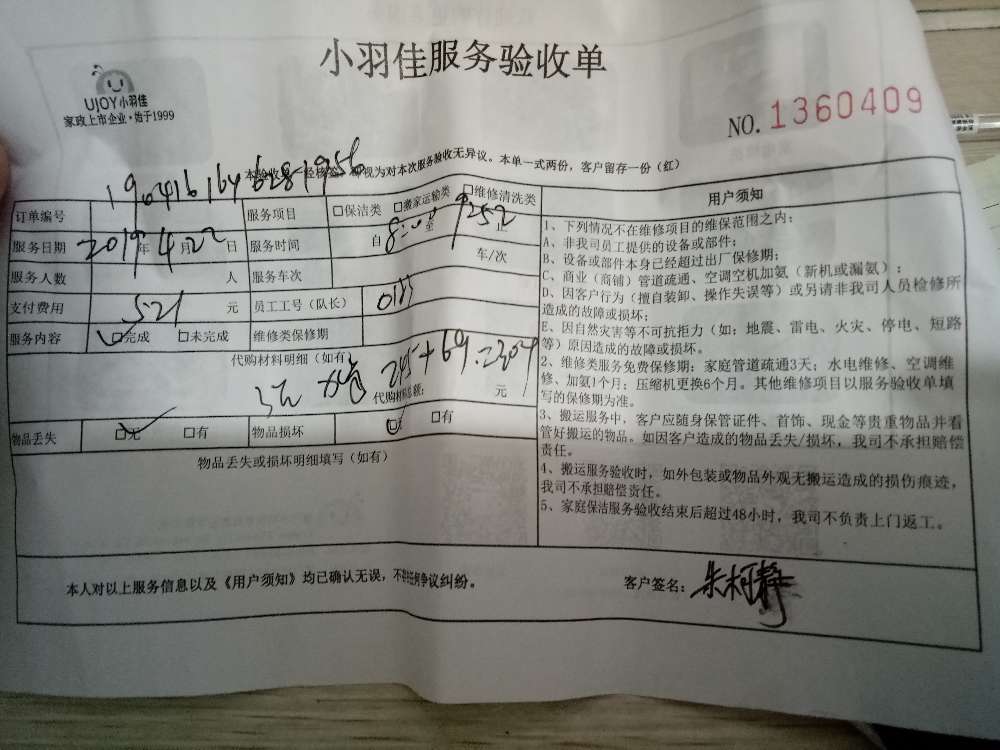 小羽佳服务验收单
UJOY小羽佳
家政上市企业·始于1999
NO.1360409
即视为对本次服务验收无异议。本单一式两份，客户留存一份（红）
订单编号
服务项目 □保洁类 □搬家运输类 □维修清洗类
服务日期 2019年4月22日 服务时间 自8:00至 止
服务人数 人 服务车次 车/次
支付费用 521 元 员工工号（队长） 0185
服务内容 □完成 □未完成 维修类保修期
代购材料明细（如有）
代购材料总额： 元
物品丢失 □无 □有 物品损坏 □有
物品丢失或损坏明细填写（如有）
用户须知
1、下列情况不在维修项目的维保范围之内：
A、非我司员工提供的设备或部件；
B、设备或部件本身已经超过出厂保修期；
C、商业（商铺）管道疏通、空调空机加氨（新机或漏氨）；
D、因客户行为（擅自装卸、操作失误等）或另请非我司人员检修所
造成的故障或损坏；
E、因自然灾害等不可抗拒力（如：地震、雷电、火灾、停电、短路
等）原因造成的故障或损坏。
2、维修类服务免费保修期：家庭管道疏通3天；水电维修、空调维
修、加氨1个月；压缩机更换6个月。其他维修项目以服务验收单填
写的保修期为准。
3、搬运服务中，客户应随身保管证件、首饰、现金等贵重物品并看
管好搬运的物品。如因客户造成的物品丢失/损坏，我司不承担赔偿
责任。
4、搬运服务验收时，如外包装或物品外观无搬运造成的损伤痕迹，
我司不承担赔偿责任。
5、家庭保洁服务验收结束后超过48小时，我司不负责上门返工。
本人对以上服务信息以及《用户须知》均已确认无误，不存任何争议纠纷。
客户签名：朱柯静